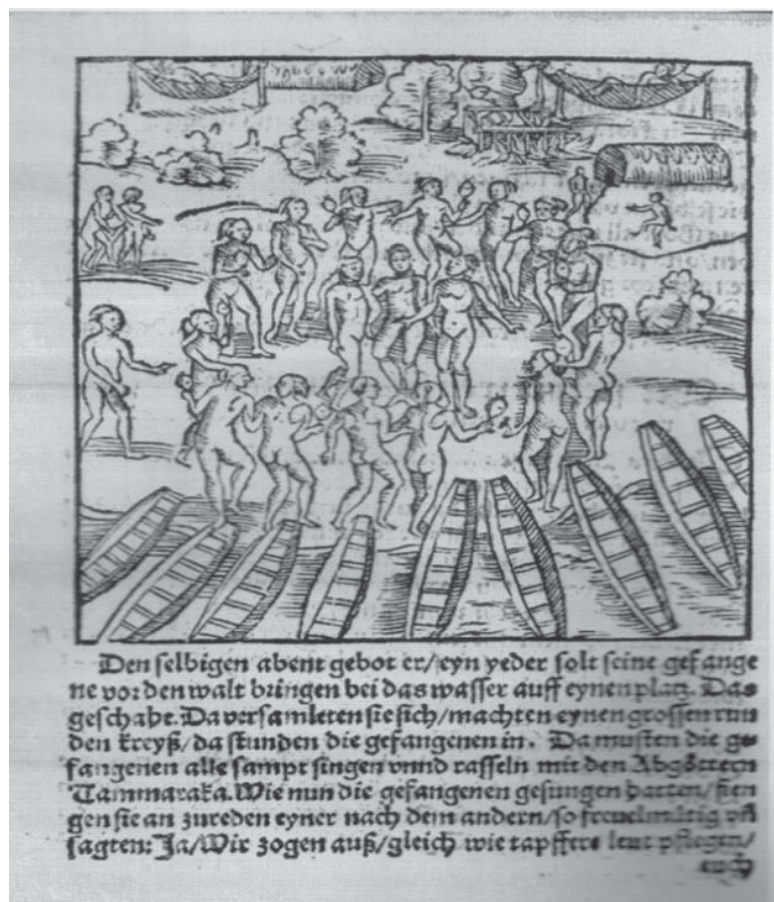 Den selbigen abent gebot er/eyn yeder solt seine gefange
ne vor den walt bringen bei das wasser auff eynen platz. Das
geschahe. Da versamleten sie sich/machten eynen grossen run
den kreyß/da stunden die gefangenen in. Da musten die ge
fangenen alle sampt singen vnnd rasseln mit den Abgöttern
Tammaraka. Wie nun die gefangenen gesungen hatten/fien
gen sie an zureden eyner nach dem andern/so freuelmütig vñ
sagten: Ja/Wir zogen auß/gleich wie tapffere leut pflegen/